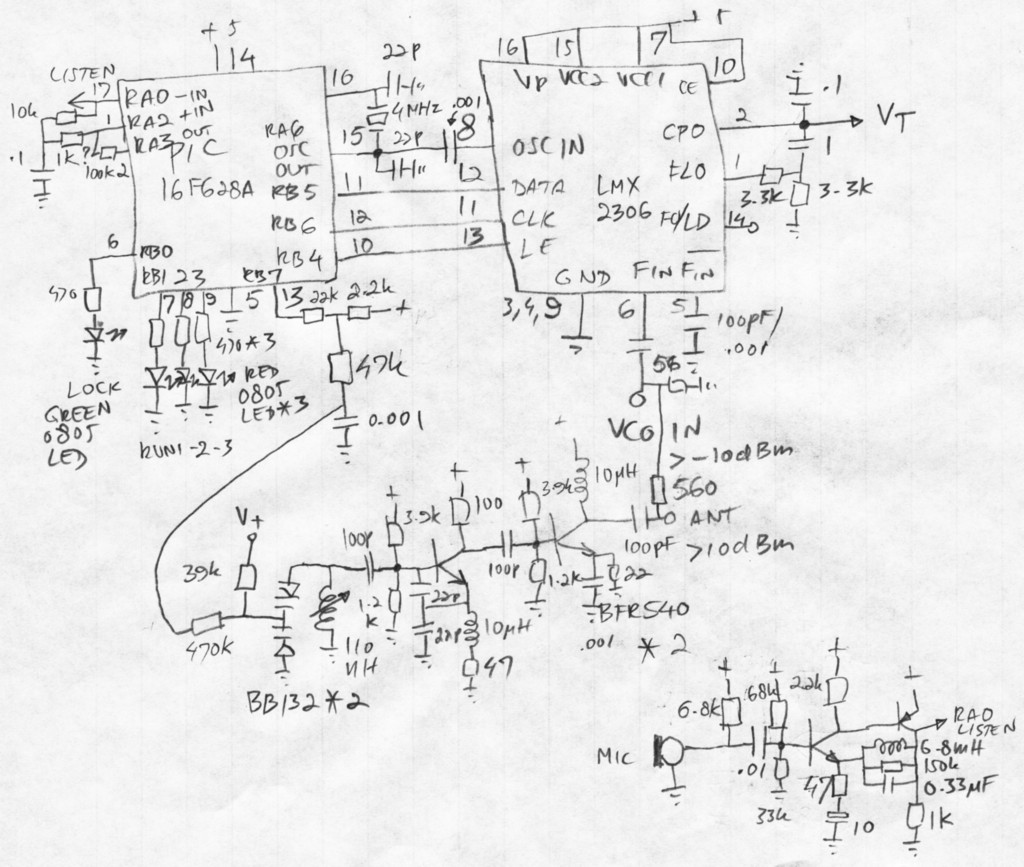 +5
14
LISTEN
17
10k
RA0 -IN
1
RA2 +IN
2
RA3 OUT
.1
1K
100K
PIC
16F628A
16
22P
4MHZ
.001
15
22P
8
RA6
OSC
OUT
11
12
RB5
12
11
RB6
10
13
RB4
6
RB0
RB1 2 3
RB7
470
7
8
9
5
13
22k
2.2k
+
470*3
47k
LOCK
GREEN
0805
LED
RED
0805
LED*3
0.001
RUN1-2-3
16
15
7
+
10
VP
VCC2
VCC1
CE
.1
2
CPO
VT
OSC IN
1
1
FLO
DATA
LMX
2306
3.3k
3.3k
CLK
FO/LD
14
LE
GND
FIN
FIN
3,4,9
6
5
100pF/
.001
56
VCO IN
>-10dBm
560
ANT
>10dBm
V+
39k
470k
BB132*2
110
nH
100P
+
3.9k
1.2
k
22P
22P
+
100
10μH
47
100P
+
3.9k
1.2k
+
10μH
100pF
22
BFR540
.001
* 2
MIC
+
6.8k
.01
+
68k
33k
+
22k
+
RA0
LISTEN
6.8mH
150k
0.33μF
47
10
1K